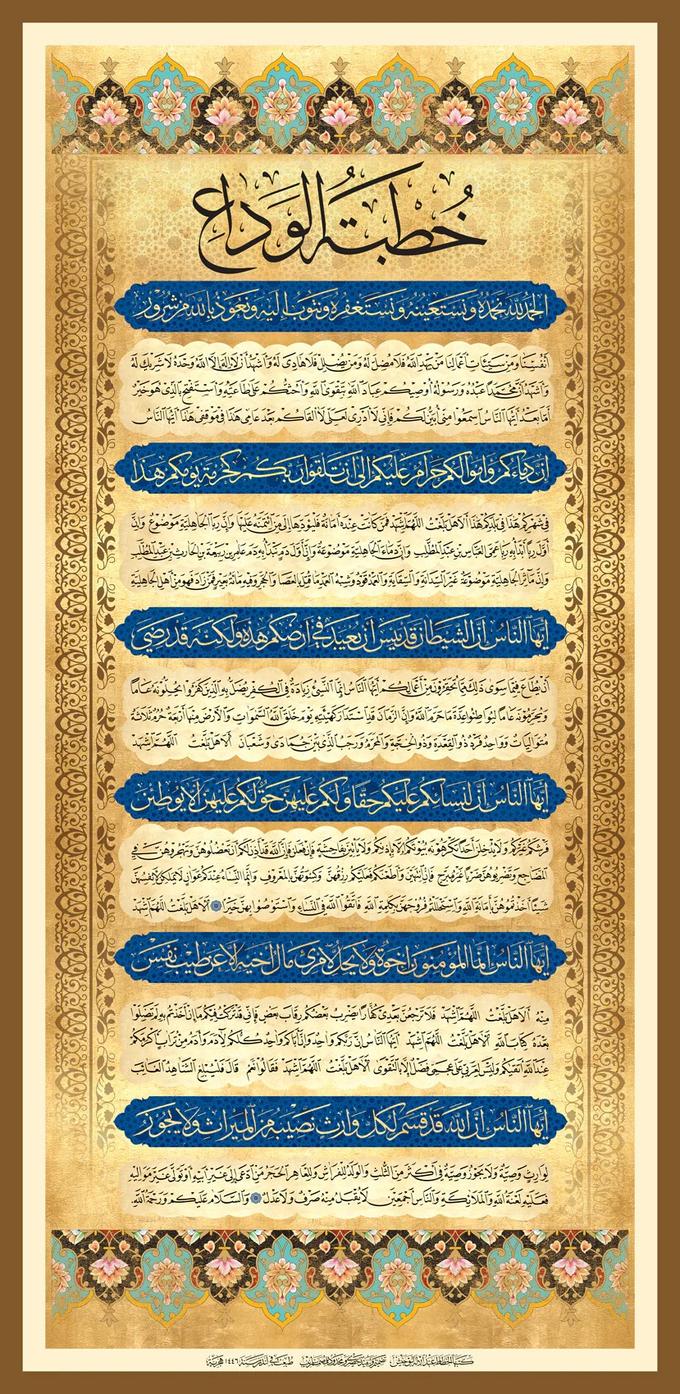 خُطبَةُ الوَدَاعِ
الحمدلله نحمده ونستعينه ونستغفره ونتوب إليه ونعوذ بالله من شرور
أنفسنا ومن سيئات أعمالنا من يهد الله فلا مضل له ومن يضلل فلا هادي له وأشهد أن لا إله إلا الله وحده لا شريك له
وأشهد أن محمدا عبده ورسوله أوصيكم عباد الله بتقوى الله وأحثكم على طاعته وأستفتح بالذي هو خير
أما بعد أيها الناس اسمعوا مني أبين لكم فإني لا أدري لعلي لا ألقاكم بعد عامي هذا في موقفي هذا أيها الناس
إن دماءكم وأموالكم حرام عليكم إلى أن تلقوا ربكم كحرمة يومكم هذا
في شهركم هذا في بلدكم هذا ألا هل بلغت اللهم اشهد فمن كانت عنده أمانة فليؤدها إلى من ائتمنه عليها وإن ربا الجاهلية موضوع وإن
أول ربا أبدأ به ربا عمي العباس بن عبد المطلب وإن دماء الجاهلية موضوعة وإن أول دم نبدأ به دم عامر بن ربيعة بن الحارث بن عبد المطلب
وإن مآثر الجاهلية موضوعة غير السدانة والسقاية والعمد قود وشبه العمد ما قتل بالعصا والحجر وفيه مائة بعير فمن زاد فهو من أهل الجاهلية
أيها الناس إن الشيطان قد يئس أن يعبد في أرضكم هذه ولكنه قد رضي
أن يطاع فيما سوى ذلك مما تحقرون من أعمالكم أيها الناس إنما النسيء زيادة في الكفر يضل به الذين كفروا يحلونه عاما
ويحرمونه عاما ليواطئوا عدة ما حرم الله وإن الزمان قد استدار كهيئته يوم خلق الله السموات والأرض منها أربعة حرم ثلاثة
متواليات وواحد فرد ذو القعدة وذو الحجة والمحرم ورجب الذي بين جمادى وشعبان ألا هل بلغت اللهم اشهد
أيها الناس إن لنسائكم عليكم حقا ولكم عليهن حق لكم عليهن ألا يوطئن
فرشكم غيركم ولا يدخلن أحدا تكرهونه بيوتكم إلا بإذنكم ولا يأتين بفاحشة فإن فعلن فإن الله قد أذن لكم أن تعضلوهن وتهجروهن في
المضاجع وتضربوهن ضربا غير مبرح فإن انتهين وأطعنكم فعليكم رزقهن وكسوتهن بالمعروف وإنما النساء عندكم عوان لا يملكن لأنفسهن
شيئا أخذتموهن بأمانة الله واستحللتم فروجهن بكلمة الله فاتقوا الله في النساء واستوصوا بهن خيرا ألا هل بلغت اللهم اشهد
أيها الناس إنما المؤمنون إخوة ولا يحل لامرئ مال لأخيه إلا عن طيب نفس
منه ألا هل بلغت اللهم اشهد فلا ترجعن بعدي كفارا يضرب بعضكم رقاب بعض فإني قد تركت فيكم ما إن أخذتم به لم تضلوا
بعده كتاب الله ألا هل بلغت اللهم اشهد أيها الناس إن ربكم واحد وإن أباكم واحد كلكم لآدم وآدم من تراب أكرمكم
عند الله أتقيكم وليس لعربي على عجمي فضل إلا بالتقوى ألا هل بلغت اللهم اشهد فقالوا نعم قال فليبلغ الشاهد الغائب
أيها الناس إن الله قد قسم لكل وارث نصيبه من الميراث ولا يجوز
لوارث وصية ولا يجوز وصية في أكثر من الثلث والولد للفراش وللعاهر الحجر من ادعى إلى غير أبيه أو تولى غير مواليه
فعليه لعنة الله والملائكة والناس أجمعين لا يقبل منه صرف ولا عدل والسلام عليكم ورحمة الله